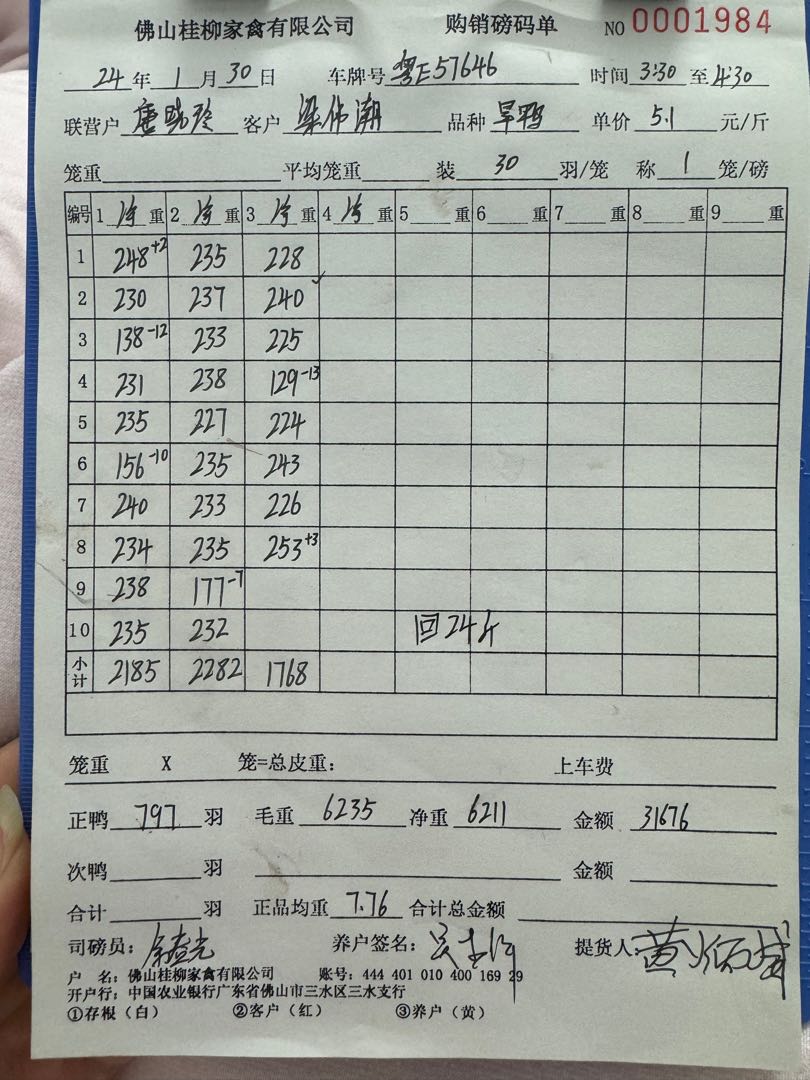 佛山桂柳家禽有限公司 购销磅码单 NO 0001984
24 年 1 月 30 日 车牌号 粤E57646 时间 3:30 至 4:30
联营户 唐晓玲 客户 梁伟潮 品种 旱鸭 单价 5.1 元/斤
笼重 平均笼重 装 30 羽/笼 称 1 笼/磅
编号 1 净 重 2 净 重 3 净 重 4 净 重 5 重 6 重 7 重 8 重 9 重
1 248+2 235 228
2 230 237 240
3 138-12 233 225
4 231 238 129-13
5 235 227 224
6 156-10 235 243
7 240 233 226
8 234 235 253+3
9 238 177-7
10 235 232 回24斤
小计 2185 2282 1768
笼重 X 笼=总皮重: 上车费
正鸭 797 羽 毛重 6235 净重 6211 金额 31676
次鸭 羽 金额
合计 羽 正品均重 7.76 合计总金额
司磅员: 养户签名: 提货人:
户 名: 佛山桂柳家禽有限公司 账号: 444 401 010 400 169 29
开户行: 中国农业银行广东省佛山市三水区三水支行
①存根(白) ②客户(红) ③养户(黄)